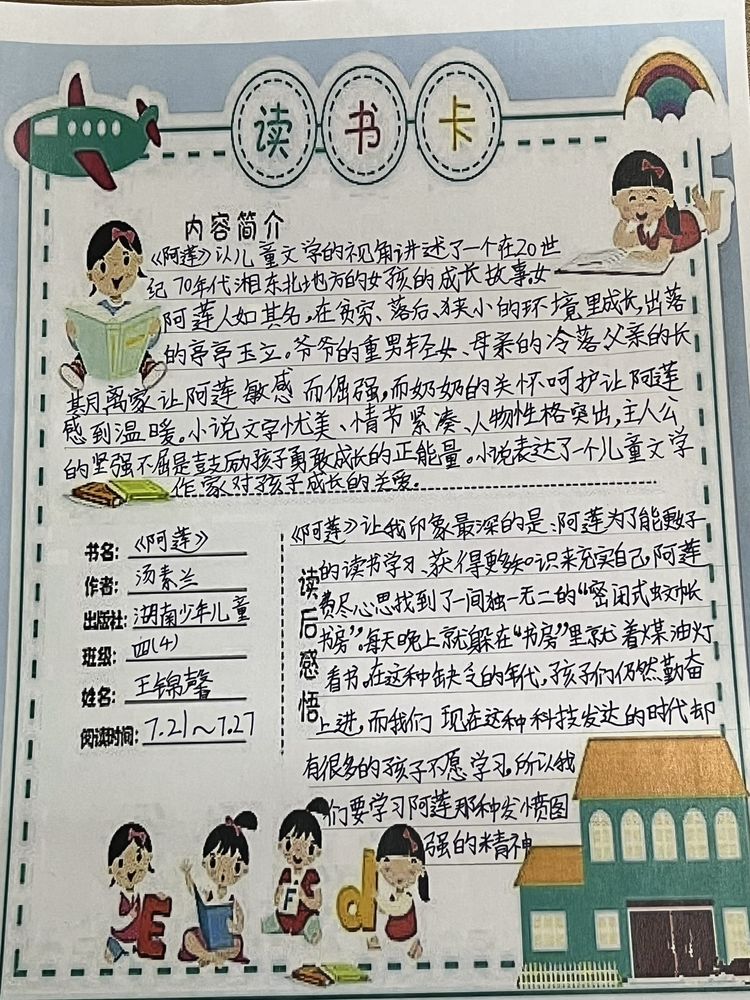 读书卡
内容简介
《阿莲》以儿童文学的视角讲述了一个在20世
纪70年代湘东北地方的女孩的成长故事。女
阿莲人如其名,在贫穷、落后、狭小的环境里成长,出落
的亭亭玉立。爷爷的重男轻女、母亲的冷落父亲的长
期离家让阿莲敏感而倔强,而奶奶的关怀呵护让阿莲
感到温暖。小说文字优美、情节紧凑、人物性格突出,主人公
的坚强不屈是鼓励孩子勇敢成长的正能量。小说表达了一个儿童文学
作家对孩子成长的关爱。
书名:《阿莲》
作者:汤素兰
出版社:湖南少年儿童
班级:四(4)
姓名:王锦馨
阅读时间:7.21～7.27
读后感悟
《阿莲》让我印象最深的是:阿莲为了能更好
的读书学习、获得更多知识来充实自己,阿莲
费尽心思找到了一间独一无二的“密闭式蚊帐
书房”。每天晚上就躲在“书房”里就着煤油灯
看书。在这种缺乏的年代,孩子们仍然勤奋
上进,而我们现在这种科技发达的时代却
有很多的孩子不愿学习。所以我
们要学习阿莲那种发愤图
强的精神
E
F
d